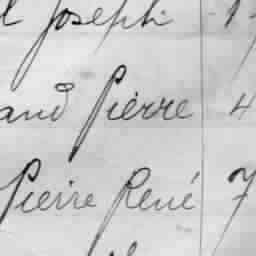 l Joseph 1
and Pierre 4
Pierre René 7